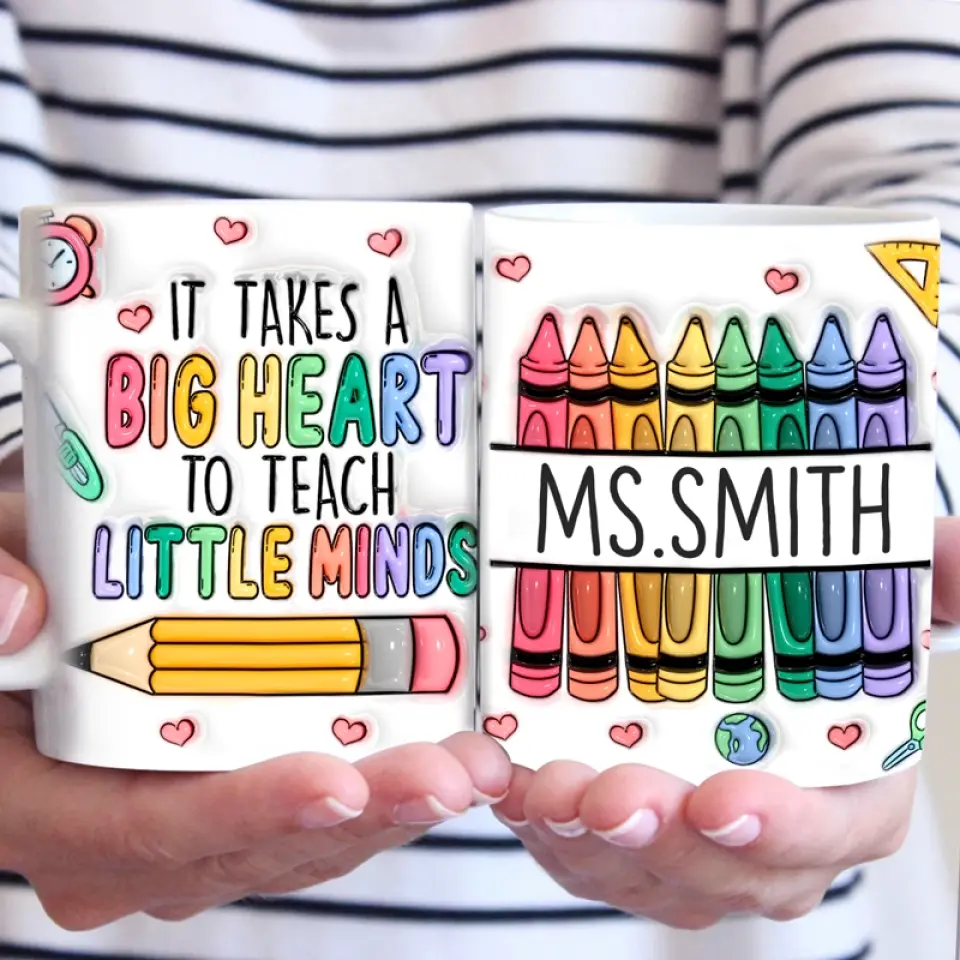 IT TAKES A
BIG HEART
TO TEACH
LITTLE MINDS
MS.SMITH